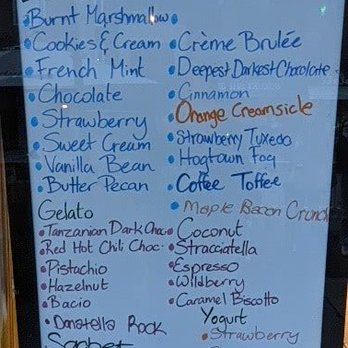 Burnt Marshmallow
Cookies & Cream
French Mint
Chocolate
Strawberry
Sweet Cream
Vanilla Bean
Butter Pecan
Gelato
Tanzanian Dark Choc
Red Hot Chili Choc
Pistachio
Hazelnut
Bacio
Donatella Rock
Sorbet
Crème Brulée
Deepest Darkest Chocolate
Cinnamon
Orange Creamsicle
Strawberry Tuxedo
Hogtown Fog
Coffee Toffee
Maple Bacon Crunch
Coconut
Stracciatella
Espresso
Wildberry
Caramel Biscotto
Yogurt
Strawberry